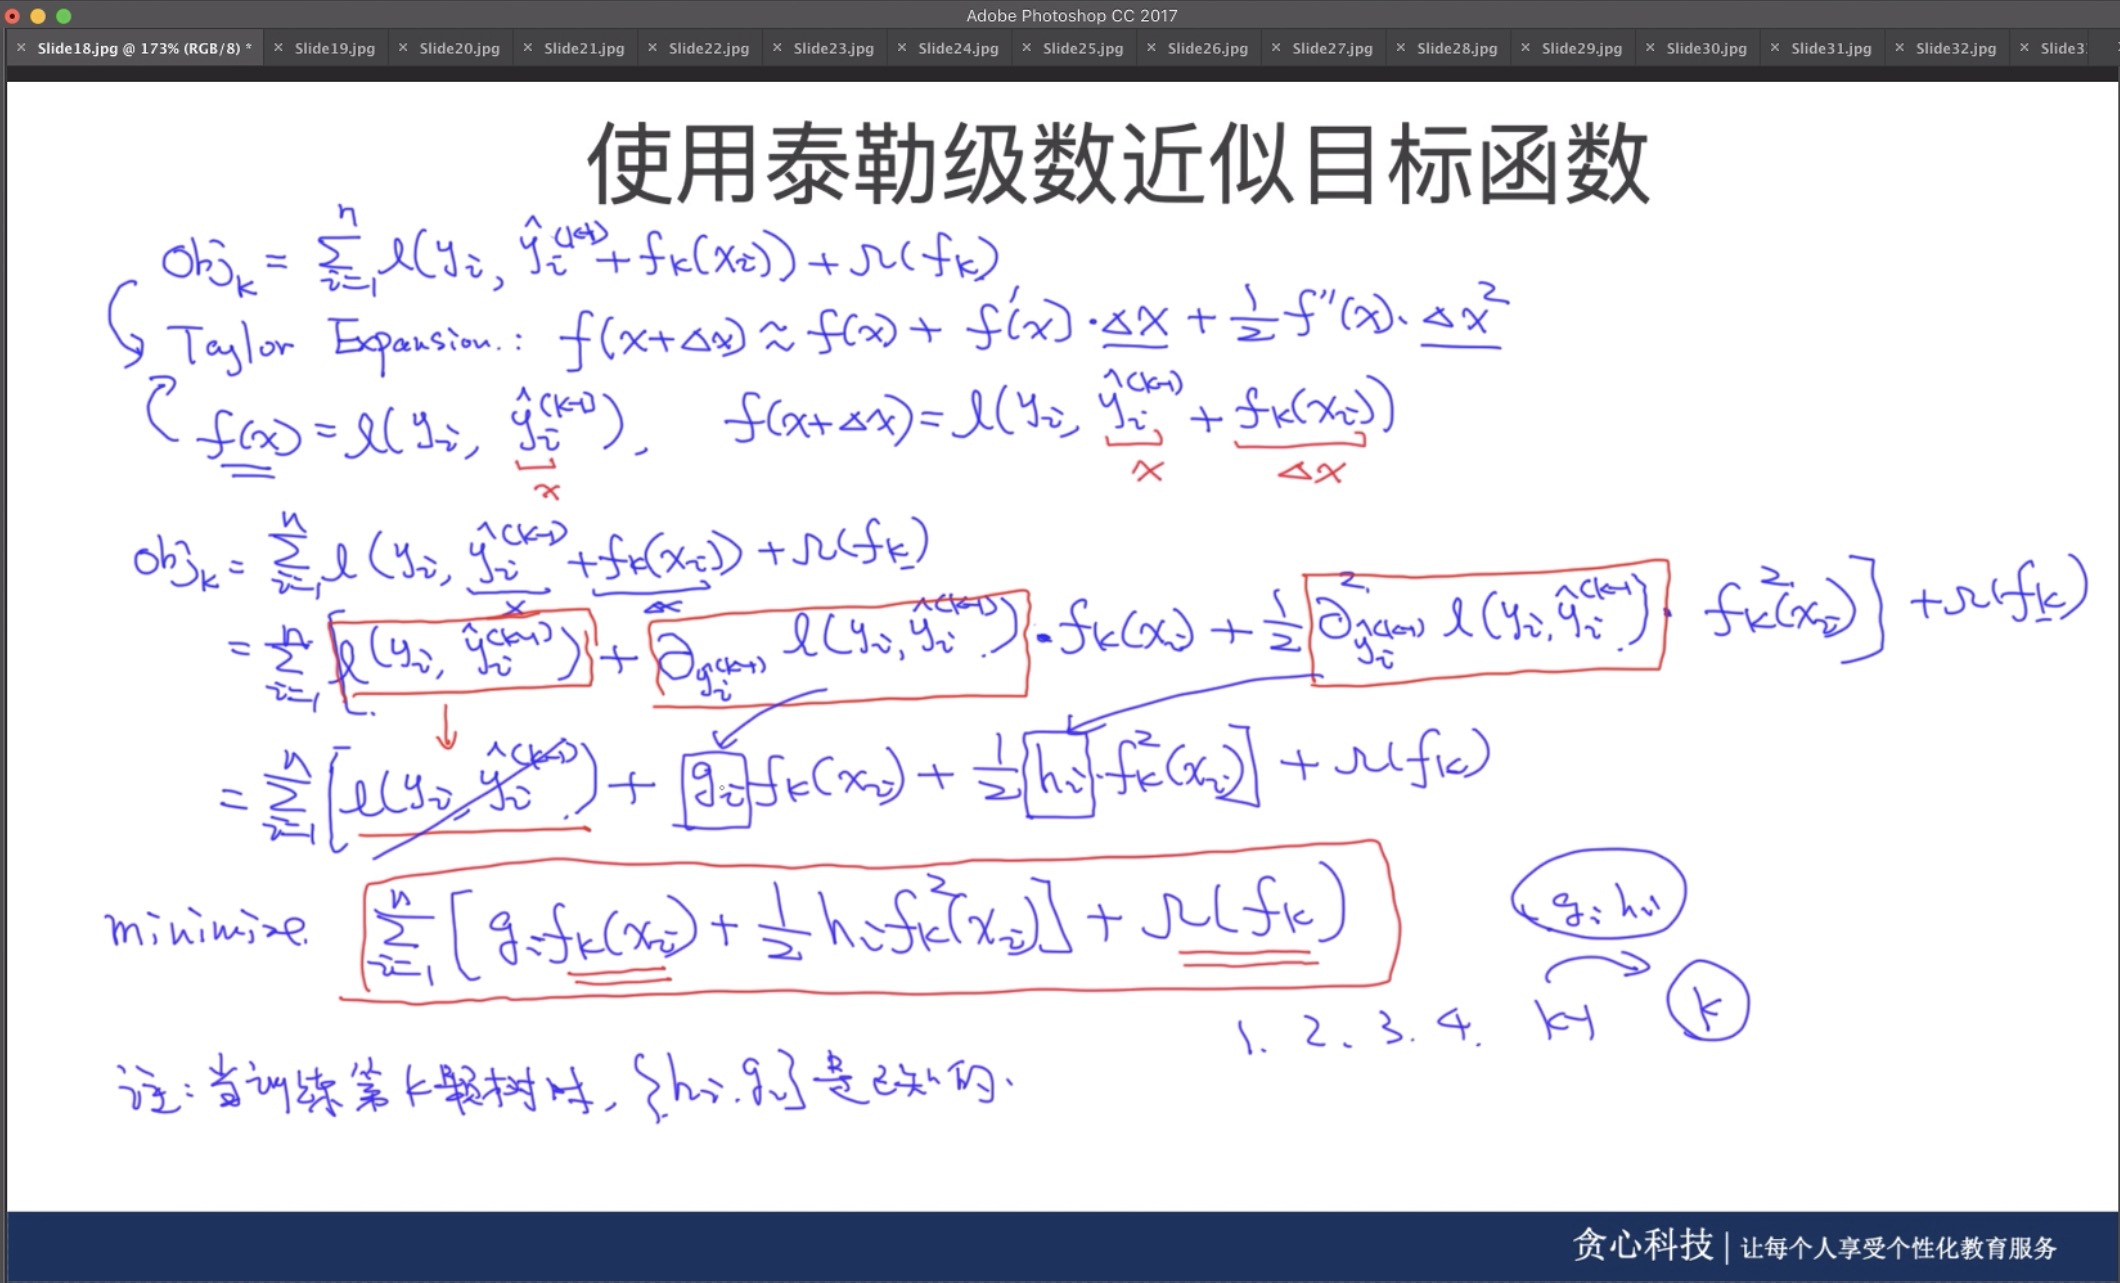 Adobe Photoshop CC 2017
× Slide18.jpg @ 173% (RGB/8) * × Slide19.jpg × Slide20.jpg × Slide21.jpg × Slide22.jpg × Slide23.jpg × Slide24.jpg × Slide25.jpg × Slide26.jpg × Slide27.jpg × Slide28.jpg × Slide29.jpg × Slide30.jpg × Slide31.jpg × Slide32.jpg × Slide3
使用泰勒级数近似目标函数
Obj_k = Σ_{i=1}^n l(y_i, ŷ_i^{(k-1)} + f_k(x_i)) + Ω(f_k)
Taylor Expansion: f(x+Δx) ≈ f(x) + f'(x)·Δx + 1/2 f''(x)·Δx²
f(x) = l(y_i, ŷ_i^{(k-1)}), f(x+Δx) = l(y_i, ŷ_i^{(k-1)} + f_k(x_i))
x x Δx
Obj_k = Σ_{i=1}^n l(y_i, ŷ_i^{(k-1)} + f_k(x_i)) + Ω(f_k)
x Δx
= Σ_{i=1}^n [l(y_i, ŷ_i^{(k-1)}) + ∂_{ŷ_i^{(k-1)}} l(y_i, ŷ_i^{(k-1)})·f_k(x_i) + 1/2 ∂²_{ŷ_i^{(k-1)}} l(y_i, ŷ_i^{(k-1)})·f_k²(x_i)] + Ω(f_k)
= Σ_{i=1}^n [l(y_i, ŷ_i^{(k-1)}) + g_i f_k(x_i) + 1/2 h_i·f_k²(x_i)] + Ω(f_k)
minimize Σ_{i=1}^n [g_i f_k(x_i) + 1/2 h_i f_k²(x_i)] + Ω(f_k)
g_i h_i
1. 2. 3. 4. k-1 k
注:当训练第k颗树时,{h_i, g_i}是已知的.
贪心科技 | 让每个人享受个性化教育服务